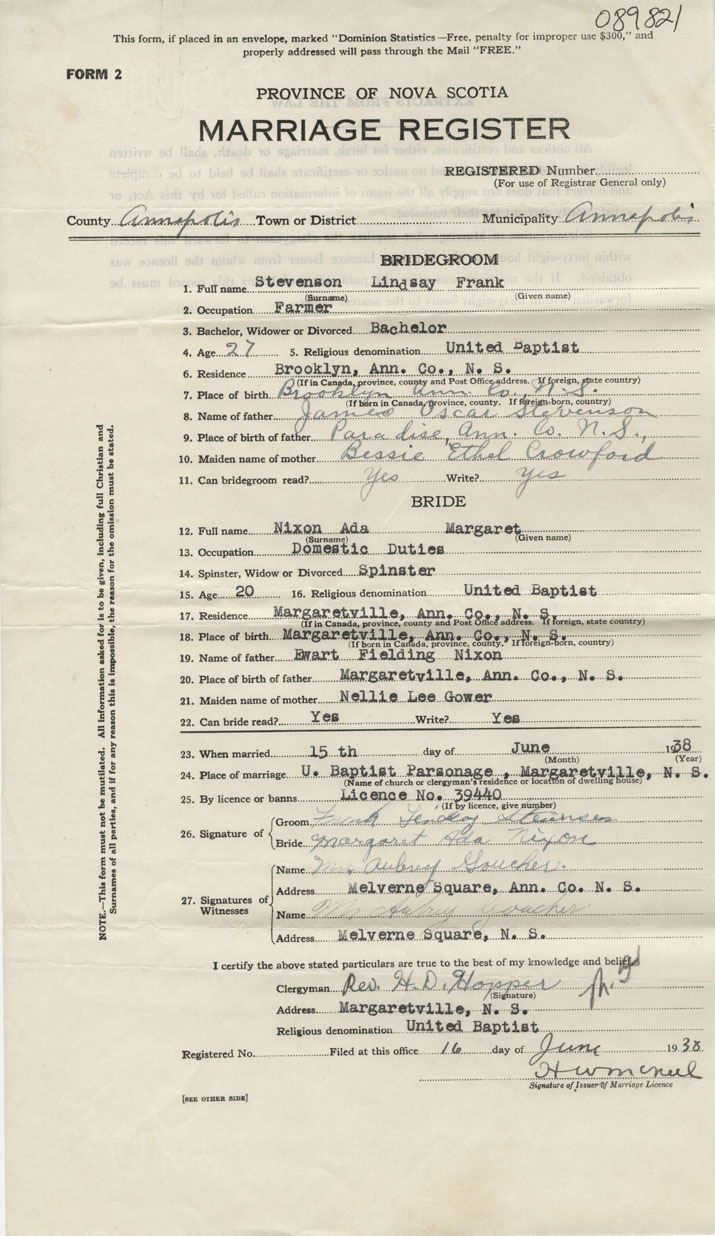 089821
This form, if placed in an envelope, marked "Dominion Statistics—Free, penalty for improper use $300," and
properly addressed will pass through the Mail "FREE."
FORM 2
PROVINCE OF NOVA SCOTIA
MARRIAGE REGISTER
REGISTERED Number
(For use of Registrar General only)
County Annapolis Town or District Municipality Annapolis
BRIDEGROOM
1. Full name Stevenson Lindsay Frank
(Surname) (Given name)
2. Occupation Farmer
3. Bachelor, Widower or Divorced Bachelor
4. Age 27 5. Religious denomination United Baptist
6. Residence Brooklyn, Ann. Co., N. S.
(If in Canada, province, county and Post Office address. If foreign, state country)
7. Place of birth Brooklyn Ann Co., N. S.
(If born in Canada, province, county. If foreign-born, country)
8. Name of father James Oscar Stevenson
9. Place of birth of father Paradise, Ann. Co. N. S.,
10. Maiden name of mother Bessie Ethel Crowford
11. Can bridegroom read? Yes Write? Yes
BRIDE
12. Full name Nixon Ada Margaret
(Surname) (Given name)
13. Occupation Domestic Duties
14. Spinster, Widow or Divorced Spinster
15. Age 20 16. Religious denomination United Baptist
17. Residence Margaretville, Ann. Co., N. S.
(If in Canada, province, county and Post Office address. If foreign, state country)
18. Place of birth Margaretville, Ann. Co., N. S.
(If born in Canada, province, county. If foreign-born, country)
19. Name of father Ewart Fielding Nixon
20. Place of birth of father Margaretville, Ann. Co., N. S.
21. Maiden name of mother Nellie Lee Gower
22. Can bride read? Yes Write? Yes
23. When married 15 th day of June 1938
(Month) (Year)
24. Place of marriage U. Baptist Parsonage , Margaretville, N. S.
(Name of church or clergyman's residence or location of dwelling house)
25. By licence or banns Licence No. 39440
(If by licence, give number)
26. Signature of Groom Frank Lindsay Stevenson
Bride Margaret Ada Nixon
27. Signatures of Witnesses
Name Mrs Aubrey Goucher.
Address Melverne Square, Ann. Co. N. S.
Name Mr Aubrey Goucher
Address Melverne Square, N. S.
I certify the above stated particulars are true to the best of my knowledge and belief.
Clergyman Rev. H. D. Hopper
(Signature)
Address Margaretville, N. S.
Religious denomination United Baptist
Registered No. Filed at this office 16 day of June 1938
H W McNeil
Signature of Issuer of Marriage Licence
[SEE OTHER SIDE]
NOTE.—This form must not be mutilated. All information asked for is to be given, including full Christian and
Surnames of all parties, and if for any reason this is impossible, the reason for the omission must be stated.